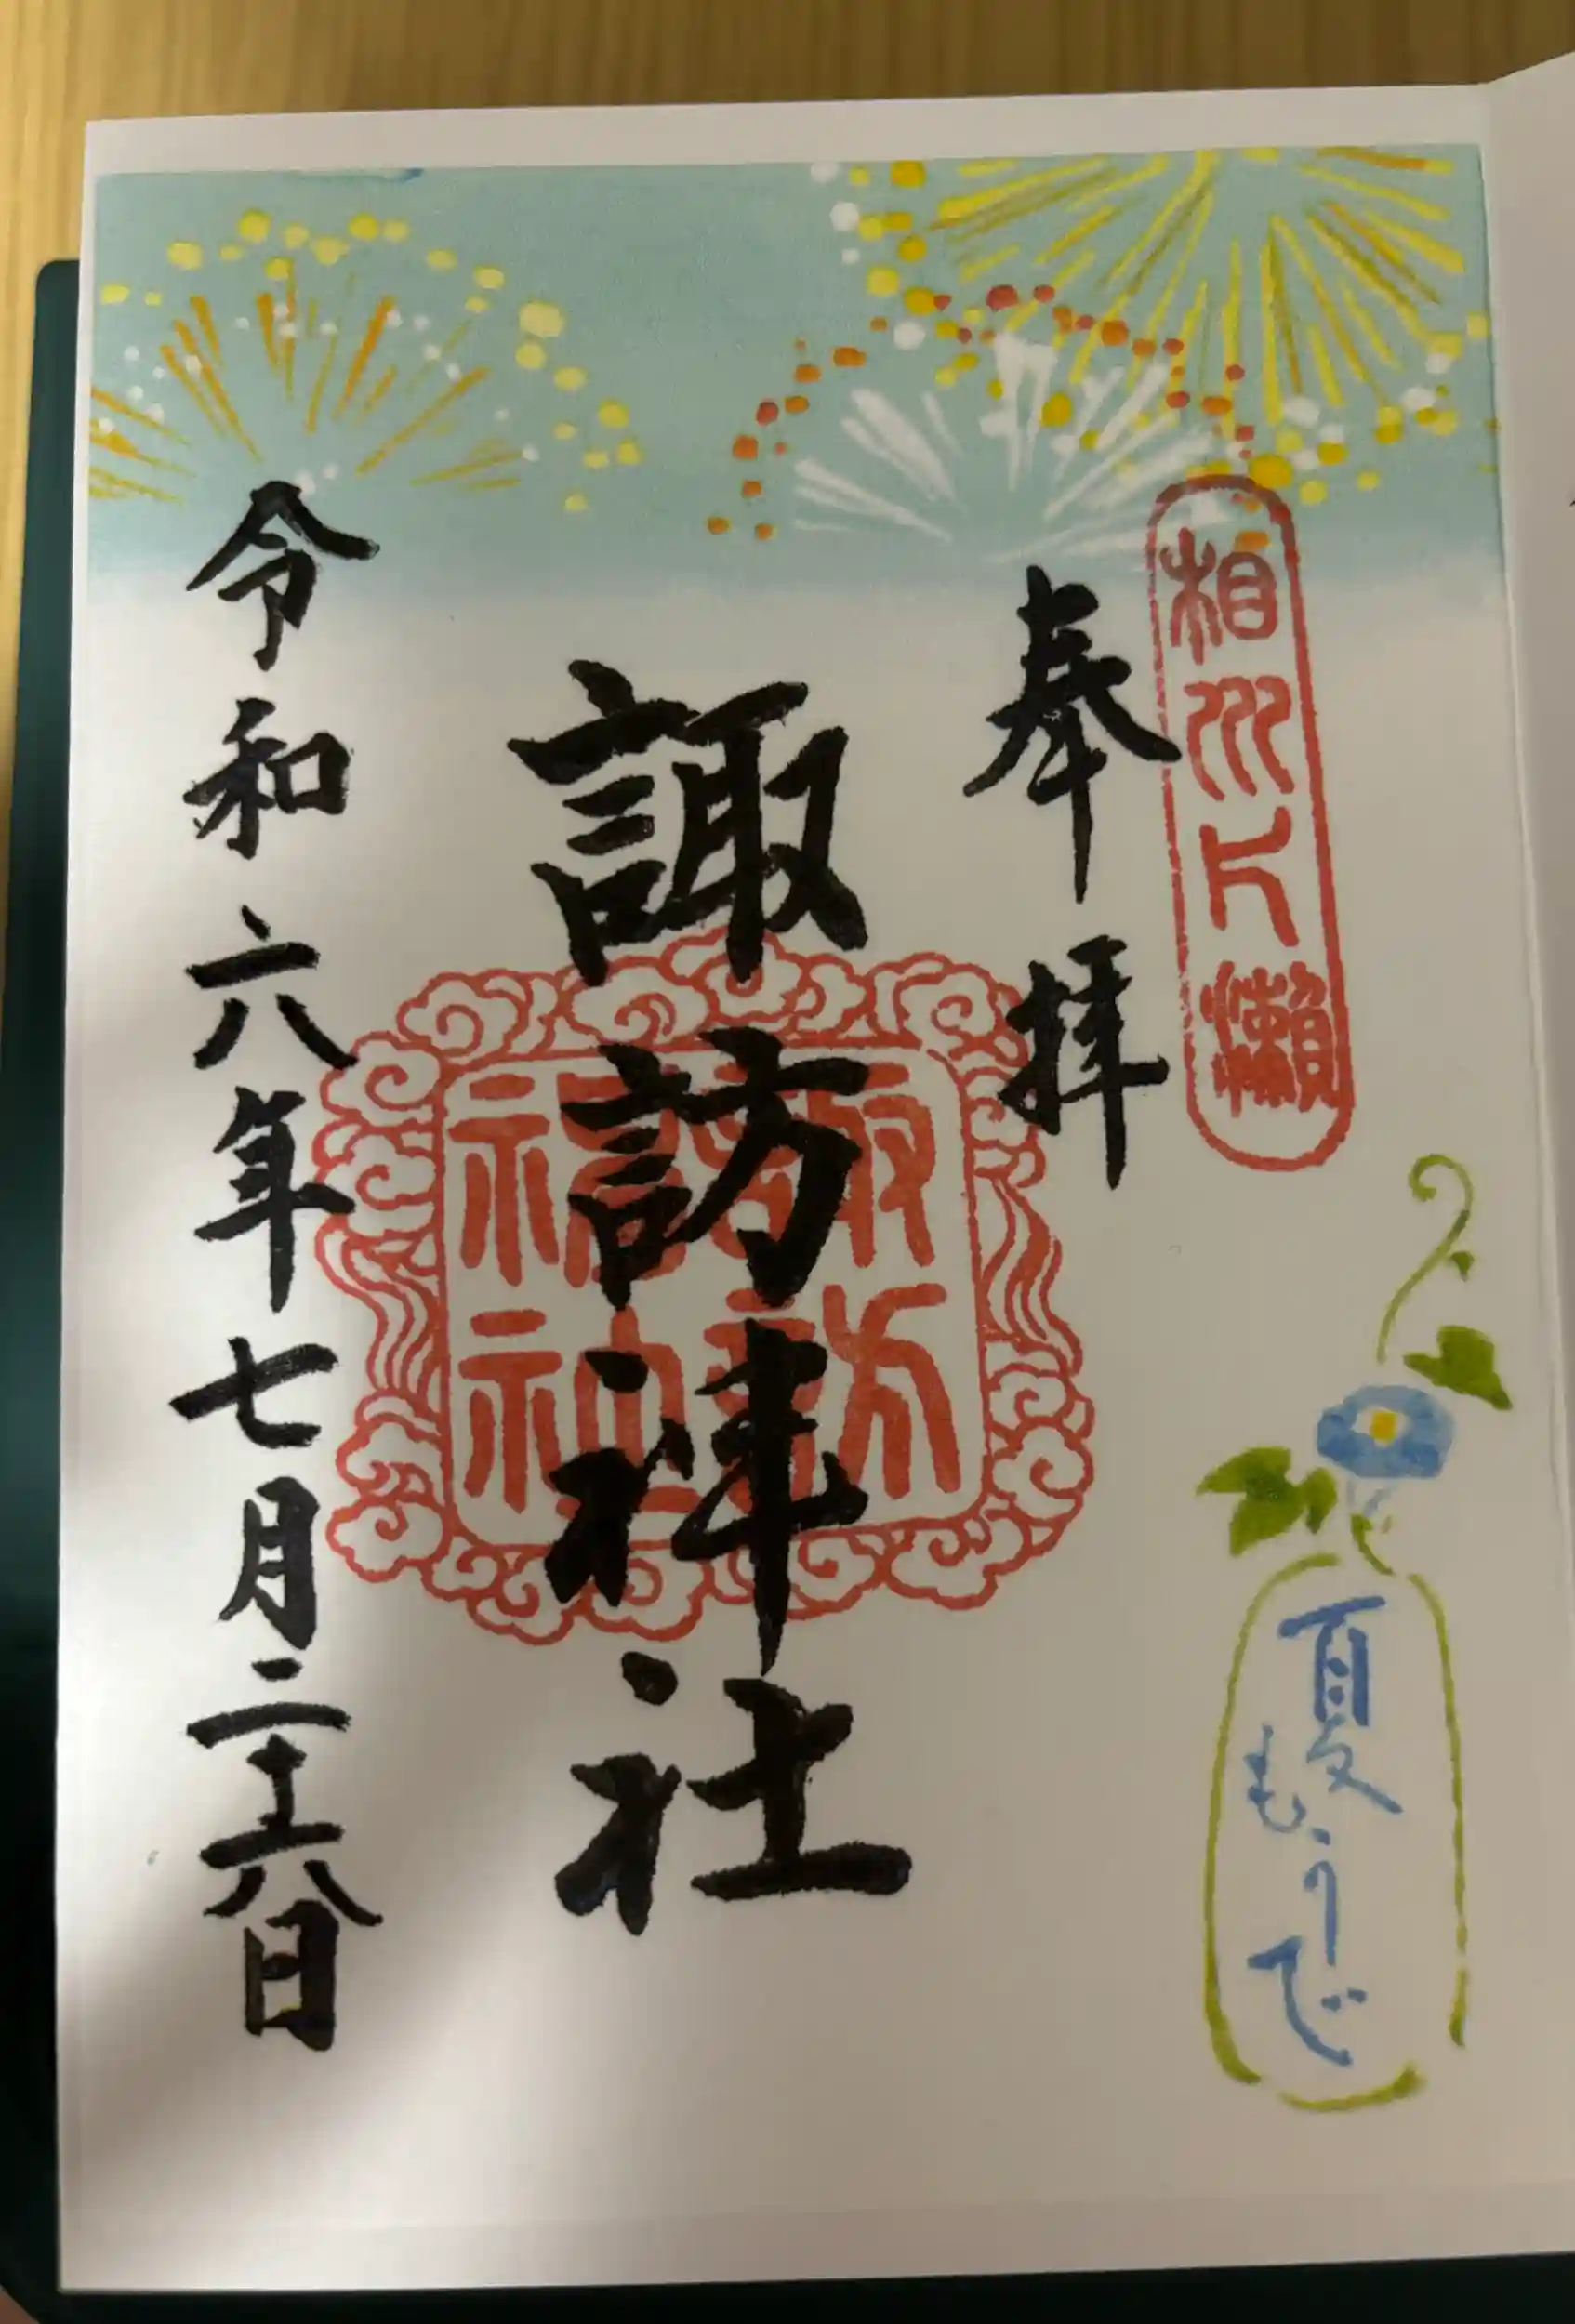 相州片瀬
奉拝
諏訪神社
令和六年七月二十六日
夏もうで